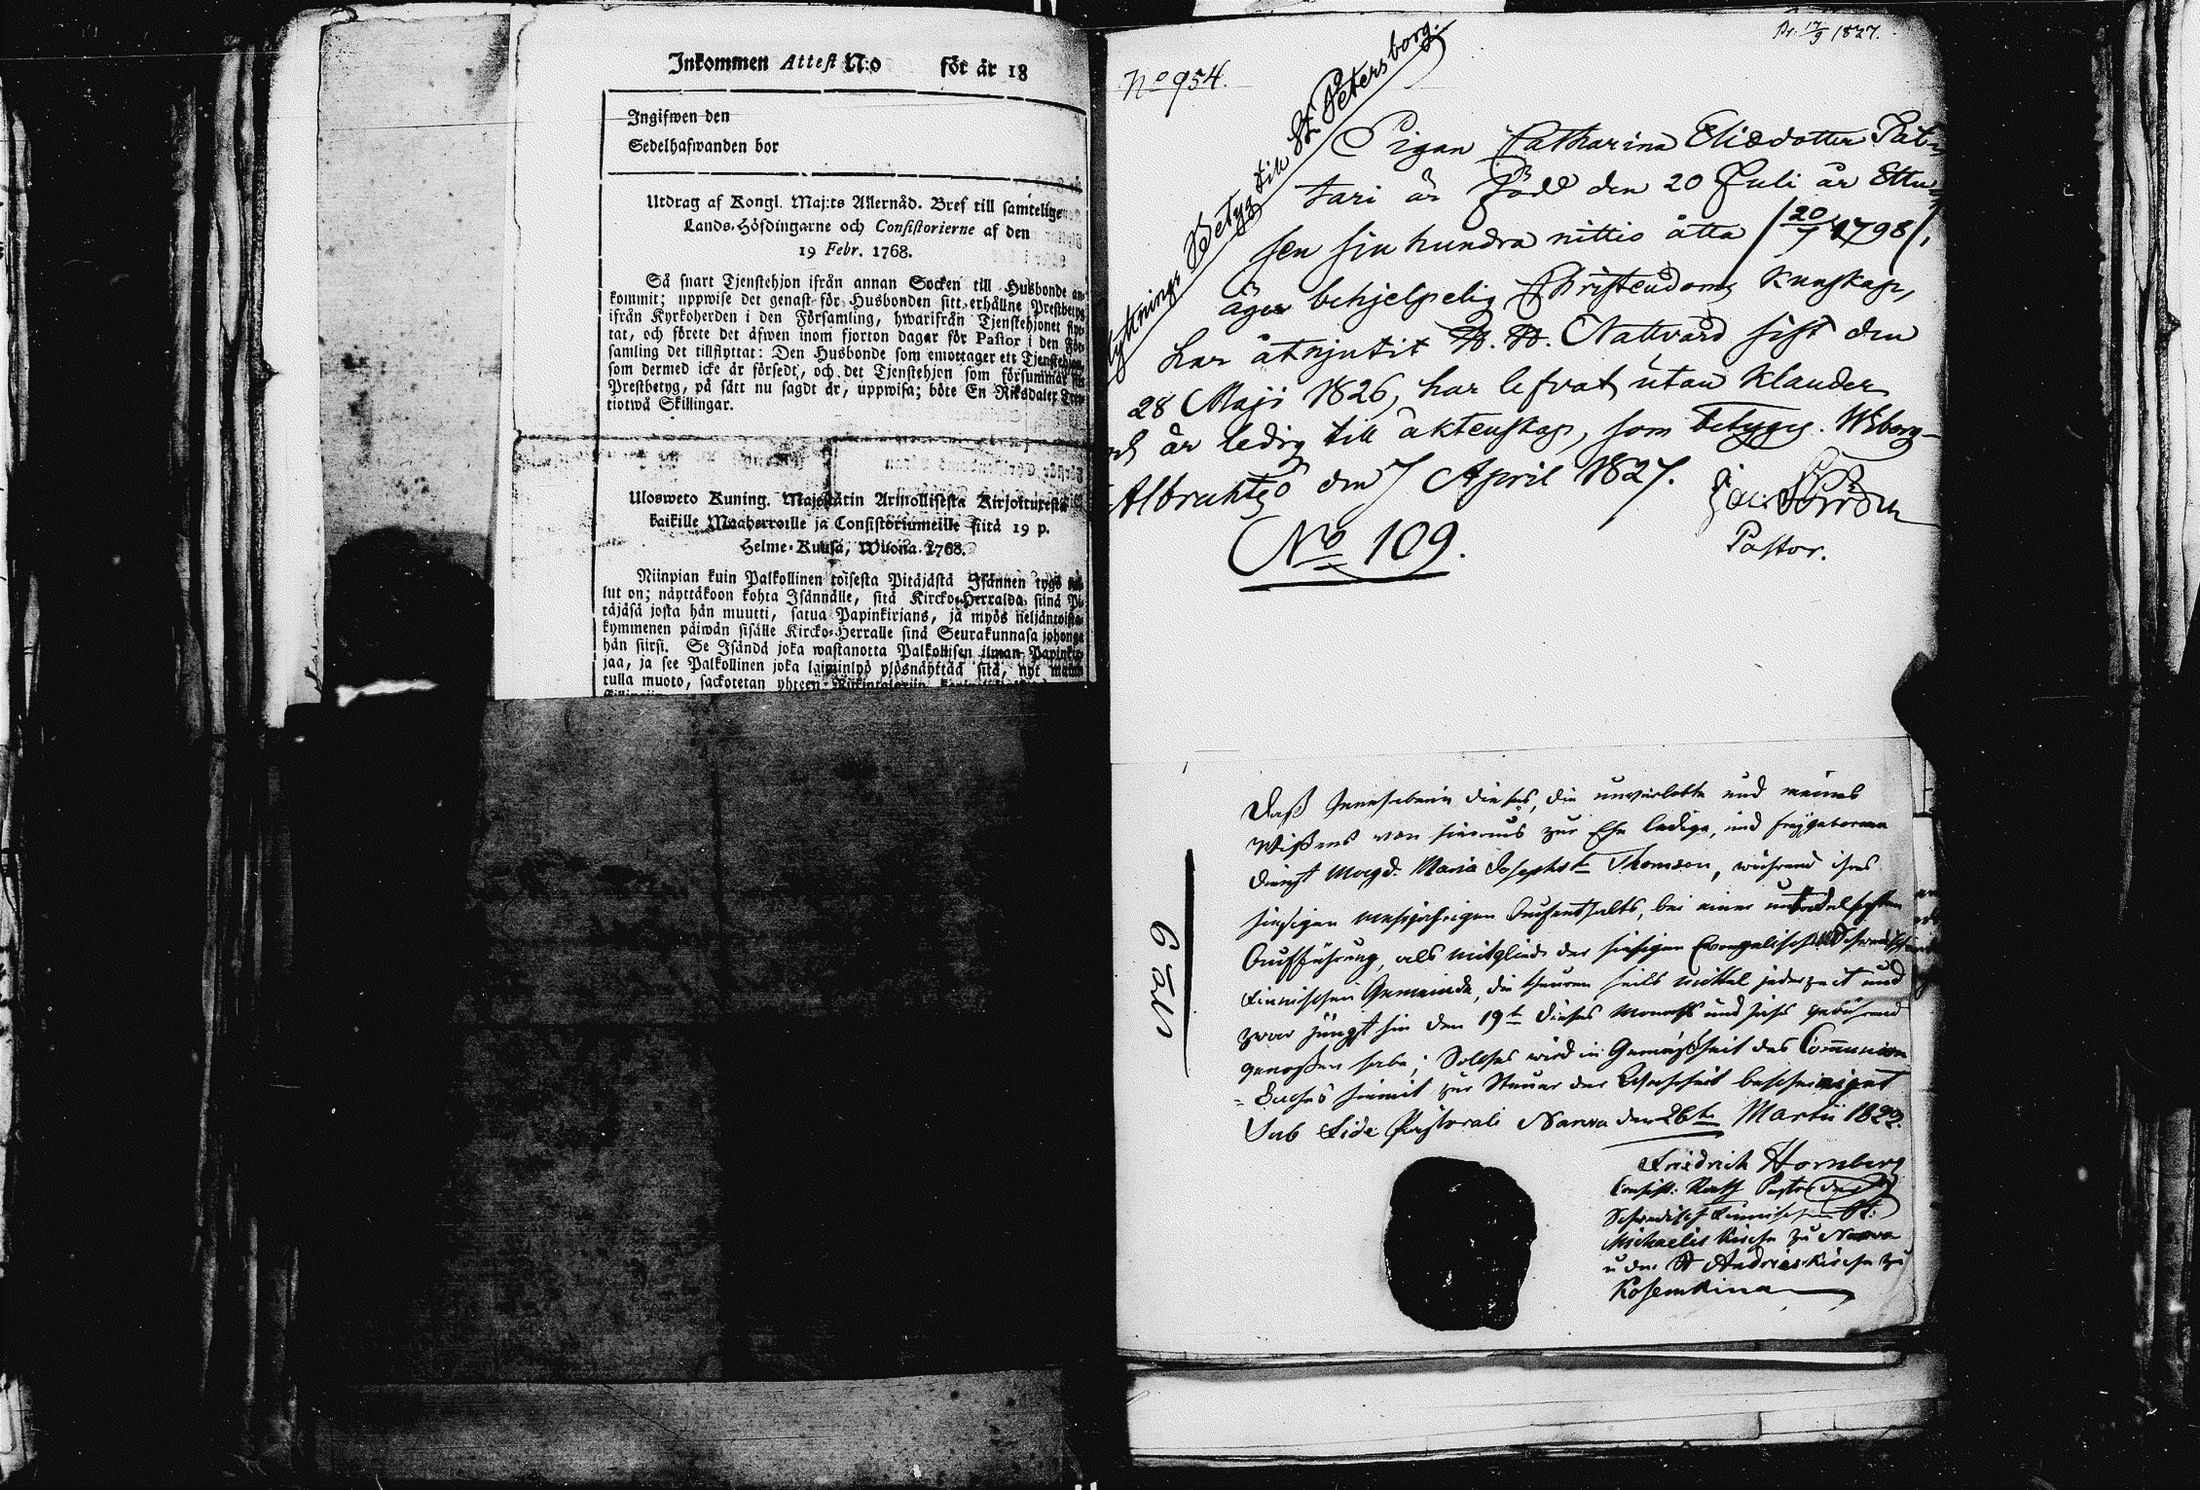 Inkommen Attest N:o för år 18
Ingifwen den
Sedelhafwanden bor
Utdrag af Kongl. Maj:ts Allernåd. Bref till samtelige
Lands-Höfdingarne och Consistorierne af den
19 Febr. 1768.
Så snart Tjenstehjon ifrån annan Socken till Husbonde an-
kommit; uppwise det genast för Husbonden sitt erhållne Prestbetyg
ifrån Kyrkoherden i den Församling, hwarifrån Tjenstehjonet flyt-
tat, och förete det äfwen inom fjorton dagar för Pastor i den För-
samling det tillflyttat: Den Husbonde som emottager ett Tjenstehjon,
som dermed icke är försedt, och det Tjenstehjon som försummar
Prestbetyg, på sätt nu sagdt är, uppwisa; böte En Riksdaler Tret-
tiotwå Skillingar.
Ulosweto Kuning. Majestätin Armollisesta Kirjoituxesta
kaikille Maaherroille ja Consistoriumeille siitä 19 p.
Helme-Kuusa, Wuona 1768.
Niinpian kuin Palkollinen toisesta Pitäjästä Isännen tygö
lut on; näyttäkoon kohta Isännälle, sitä Kircko-Herralda siinä Pi-
täjäsä josta hän muutti, satua Papinkirjans, ja myös neljäntoista-
kymmenen päiwän sisälle Kircko-Herralle siná Seurakunnasa johonga
hän siirsi. Se Isändä joka wastanotta Palkollisen ilman Papinkir-
jaa, ja see Palkollinen joka laiminlyö ylösnäyttää sitä, nyt
tulla muoto, sackotetan yhteen Riikintaleriin
Pr. 17/9 1827.
No 954.
Flyttnings Betyg till St. Petersborg.
Pigan Catharina Eliædotter Pät-
tari är född den 20 Juli år Ettu-
sen sju hundra nittio åtta /20/7 1798/,
äger behjelpelig Christendoms Kunskap,
har åtnjutit H. H. Nattvard sist den
28 Maji 1826, har lefvat utan klander
och är ledig till äktenskap, som betyges. Wiborg
den 7 April 1827.
Pastor.
No 109.
Daß Innhaberin dieses, die unverlobte und meines
Wißens von hieraus zur Ehe ledige, und freygeborene
Dienst Magd: Maria Josephs Thomson, während ihres
hiesigen mehrjährigen Aufenthalts, bei einer untadelhaften
Aufführung, als Mitglied der hiesigen Evangelisch Schwedisch
Finnischen Gemeinde, die theuren Heils mittel jederzeit und
zwar jüngst hin den 19t dieses Monats und Jahrs gebührend
genoßen habe; Solches wird in Gemäßheit des Communion
=Buches hiemit zur Steuer der Wahrheit bescheiniget
Sub Fide Pastorali Narva den 26t Martii
Friedrich Hornberg
Consist: Rath Pastor der
Schwedisch Finnischen St:
Michaelis Kirche zu Narva
u der St Andreas Kirche zu
Kosemkina